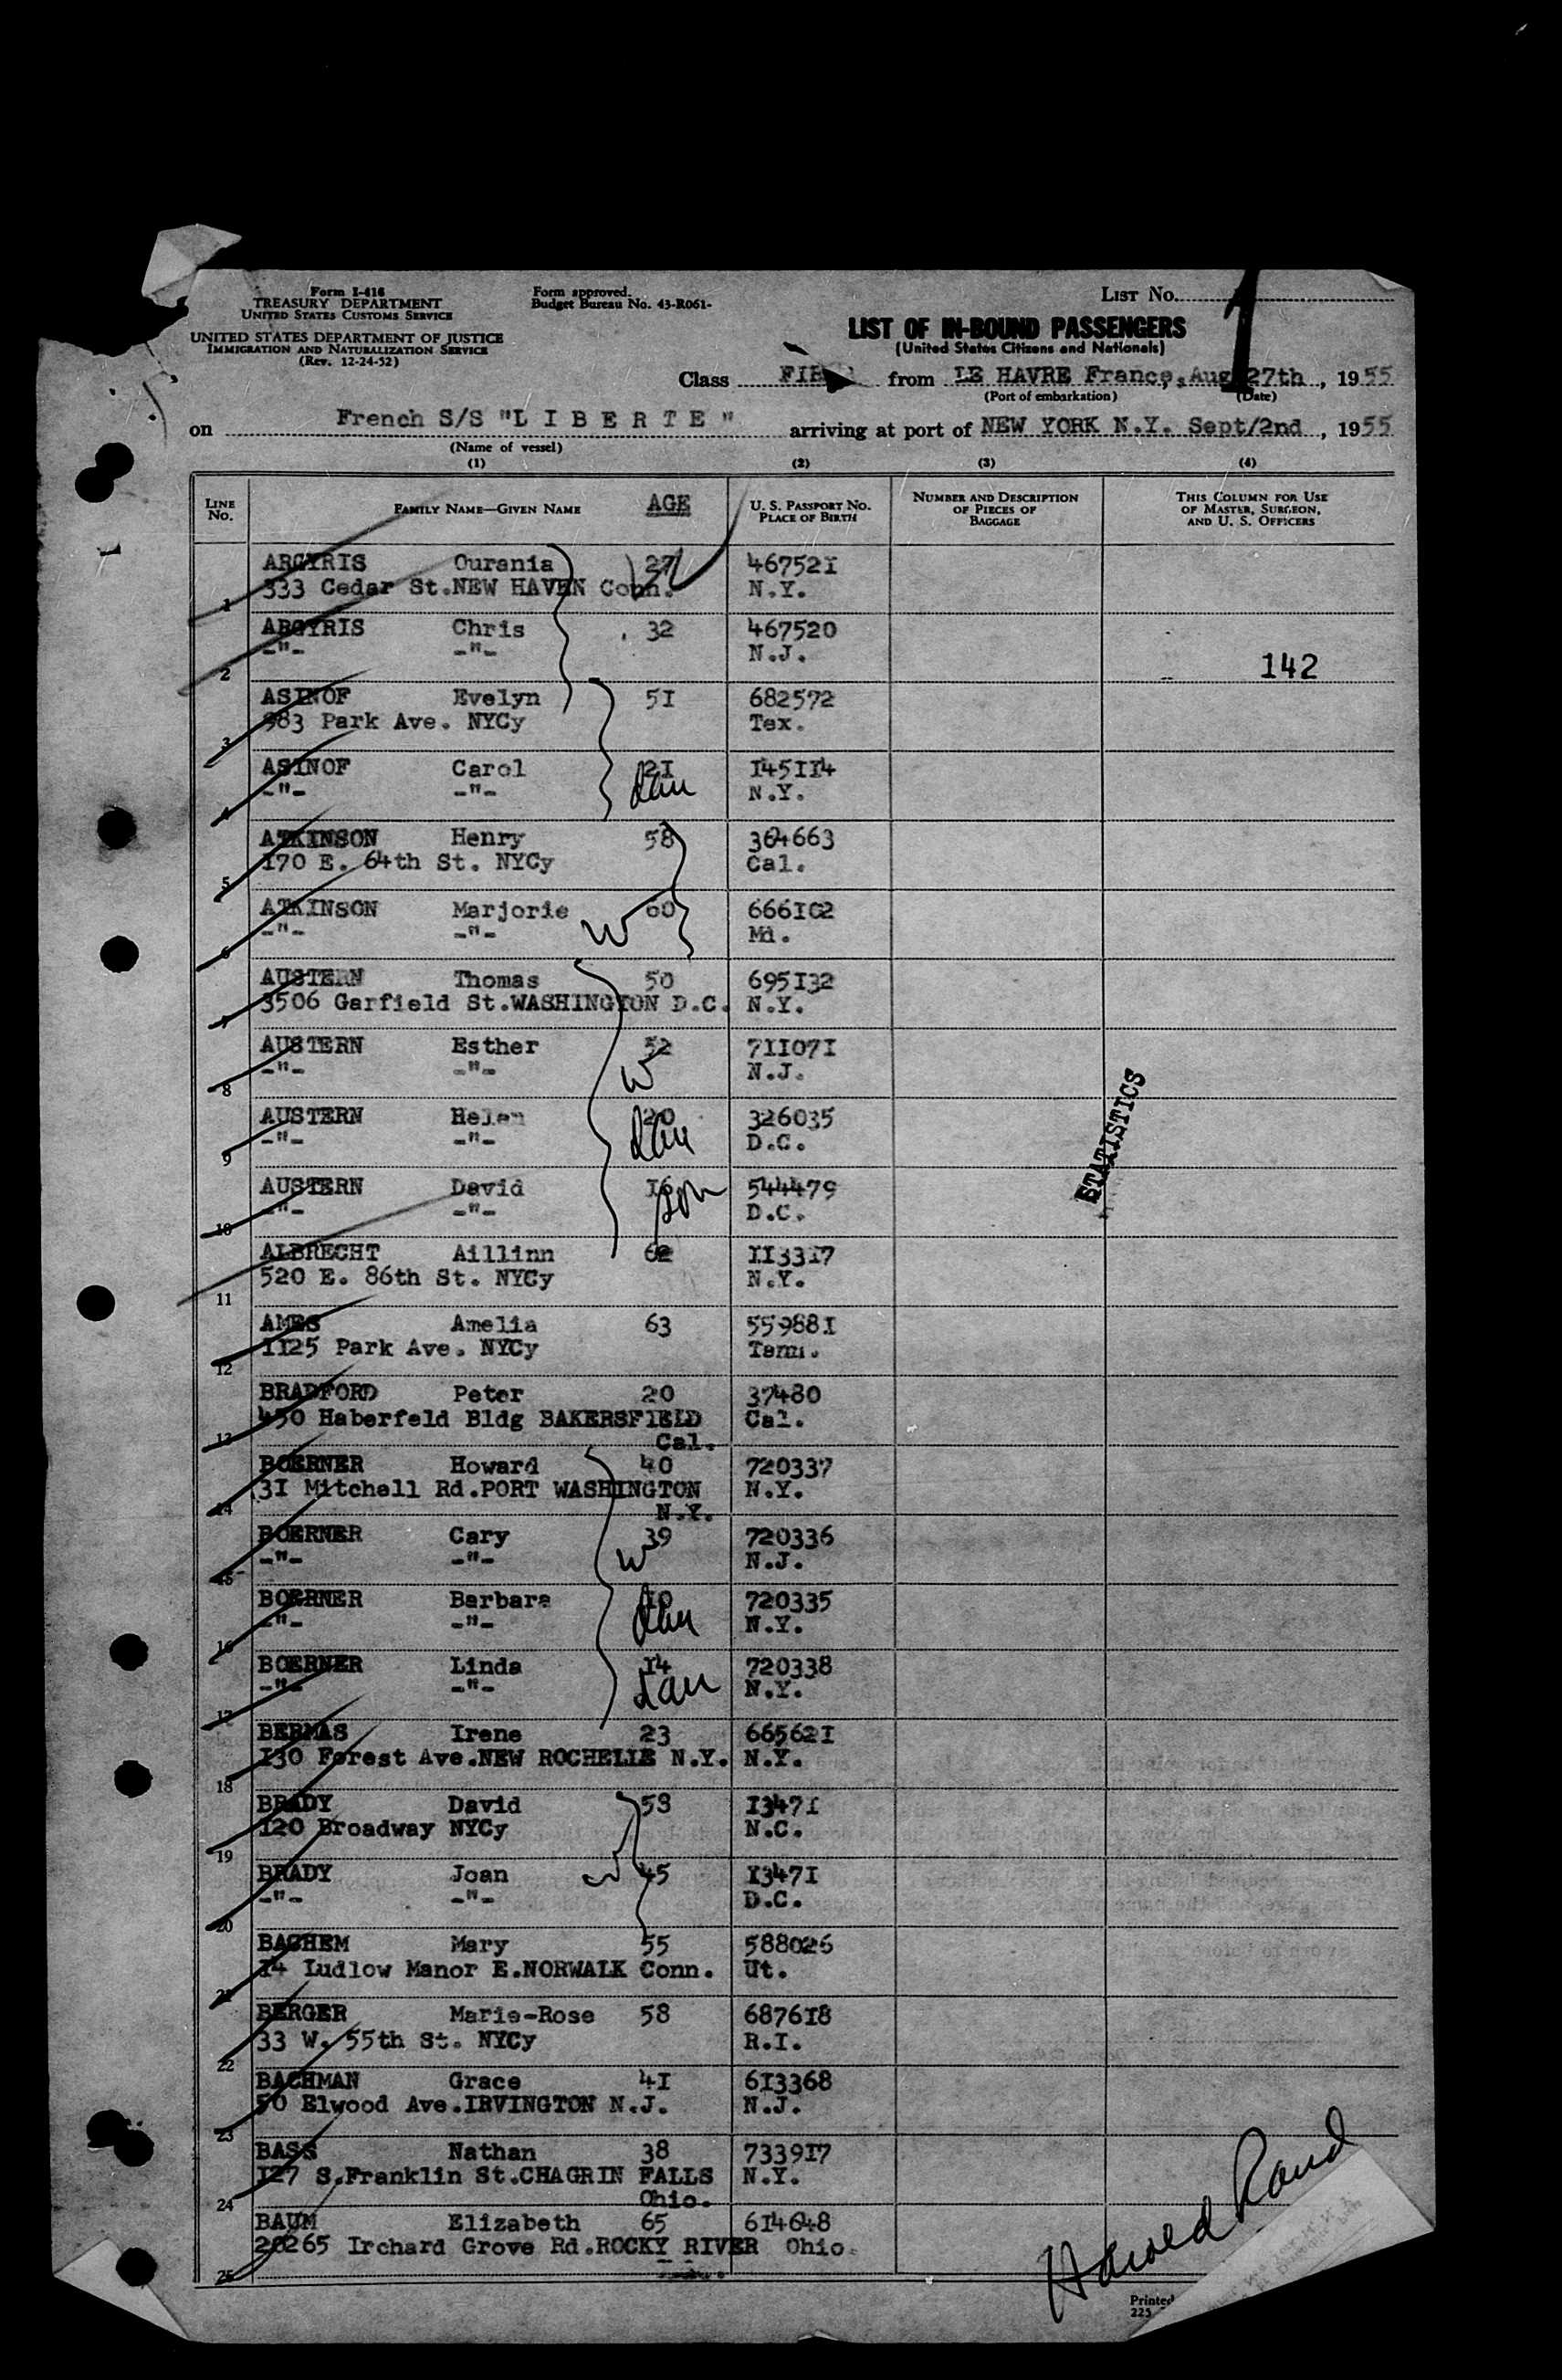 Form I-416
TREASURY DEPARTMENT
UNITED STATES CUSTOMS SERVICE
UNITED STATES DEPARTMENT OF JUSTICE
IMMIGRATION AND NATURALIZATION SERVICE
(Rev. 12-24-52)
Form approved.
Budget Bureau No. 43-R061-
LIST No.
1
LIST OF IN-BOUND PASSENGERS
(United States Citizens and Nationals)
Class from LE HAVRE France, Aug 27th, 1955
(Port of embarkation) (Date)
on French S/S "L I B E R T E" arriving at port of NEW YORK N.Y. Sept/2nd, 1955
(Name of vessel)
(1) (2) (3) (4)
LINE No. FAMILY NAME—GIVEN NAME AGE U. S. PASSPORT No. PLACE OF BIRTH NUMBER AND DESCRIPTION OF PIECES OF BAGGAGE THIS COLUMN FOR USE OF MASTER, SURGEON, AND U. S. OFFICERS
ARGYRIS Ourania 27 467521
1 333 Cedar St.NEW HAVEN Conn. N.Y.
ARGYRIS Chris 32 467520
2 -"- -"- N.J.
142
ASINOF Evelyn 51 682572
3 983 Park Ave. NYCy Tex.
ASINOF Carol 21 145114
4 -"- -"- dau N.Y.
ATKINSON Henry 58 364663
5 170 E. 64th St. NYCy Cal.
ATKINSON Marjorie W 60 666102
6 -"- -"- Mi.
AUSTERN Thomas 50 695132
7 3506 Garfield St.WASHINGTON D.C. N.Y.
AUSTERN Esther 52 711071
8 -"- -"- W N.J.
AUSTERN Helen 20 326035
9 -"- -"- dau D.C.
AUSTERN David 16 son 544479
10 -"- -"- D.C.
STATISTICS
ALBRECHT Aillinn 62 113317
11 520 E. 86th St. NYCy N.Y.
AMES Amelia 63 559881
12 1125 Park Ave. NYCy Tenn.
BRADFORD Peter 20 37480
13 450 Haberfeld Bldg BAKERSFIELD Cal.
Cal.
BOERNER Howard 40 720337
14 31 Mitchell Rd.PORT WASHINGTON N.Y.
N.Y.
BOERNER Cary 39 720336
15 -"- -"- W N.J.
BOERNER Barbara 10 720335
16 -"- -"- dau N.Y.
BOERNER Linda 14 720338
17 -"- -"- dau N.Y.
BERMAS Irene 23 665621
18 130 Forest Ave.NEW ROCHELLE N.Y. N.Y.
BRADY David 58 13471
19 120 Broadway NYCy N.C.
BRADY Joan W 45 13471
20 -"- -"- D.C.
BACHEM Mary 55 588026
21 14 Ludlow Manor E.NORWALK Conn. Ut.
BERGER Marie-Rose 58 687618
22 33 W. 55th St. NYCy R.I.
BACHMAN Grace 41 613368
23 50 Elwood Ave.IRVINGTON N.J. N.J.
BASS Nathan 38 733917
24 127 S.Franklin St.CHAGRIN FALLS N.Y.
Ohio.
BAUM Elizabeth 65 614648
25 20265 Irchard Grove Rd.ROCKY RIVER Ohio.
Harold Rand
Printed
225